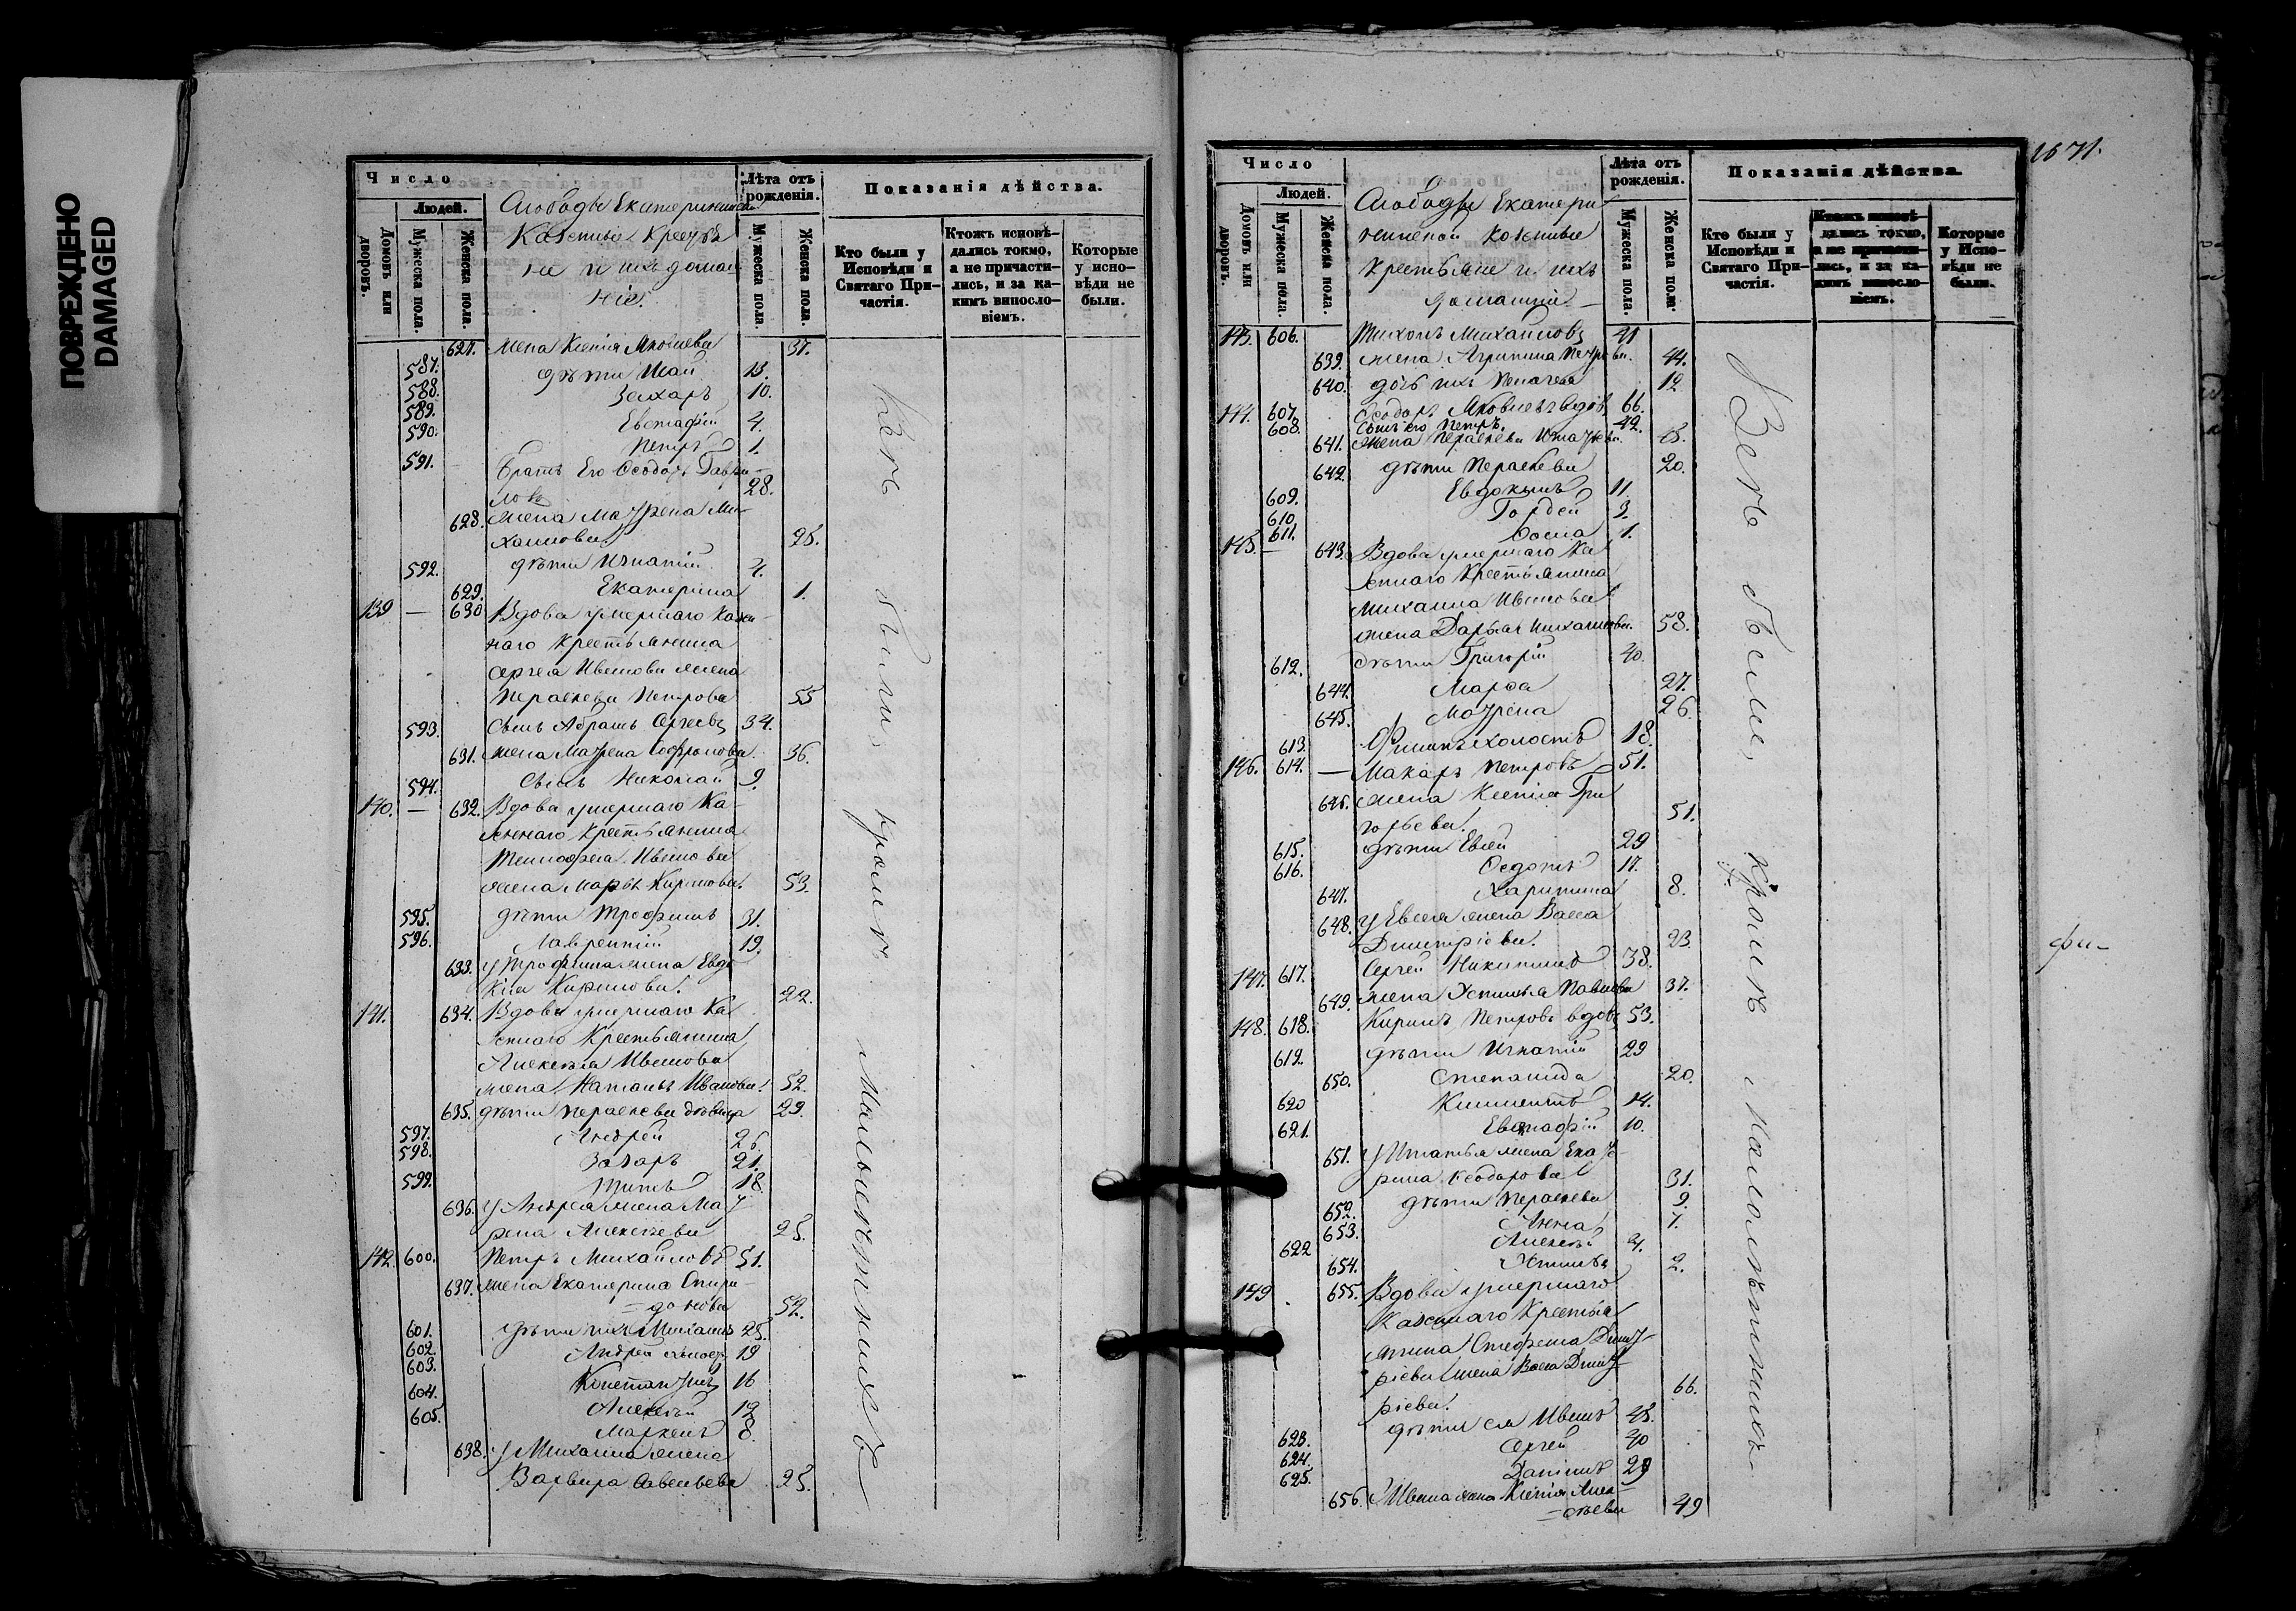 ПОВРЕЖДЕНО
DAMAGED
Число
Людей.
Домовъ или дворовъ.
Мужеска пола.
Женска пола.
Слободы Екатерининской
Казенные Крестья
не и ихъ домаш
ніе.
Лѣта отъ рожденія.
Мужеска пола.
Женска пола.
Показанія дѣйства.
Кто были у Исповѣди и Святаго Причастія.
Ктожъ исповѣдались токмо, а не причастились, и за какимъ винословіемъ.
Которые у исповѣди не были.
627. жена Ксенія Яковлева 37.
587. дѣти Исай 13.
588. Захаръ 10.
589. Евстафій 4.
590. Петръ 1.
591. Братъ Его Ѳеодоръ Гаври-
ловъ 28.
628. жена Матрена Ми-
хайлова 25.
592. дѣти Игнатій 4.
629. Екатерина 1.
139 — 630 Вдова умершаго Казен-
наго Крестьянина
Сергея Иванова жена
Параскева Петрова 55
593. Сынъ Абрамъ Сергеевъ 34.
631. жена Матрена Софронова 36.
594. Сынъ Николай 9.
140. — 632. Вдова умершаго Ка-
зеннаго Крестьянина
Тимофея Иванова
жена Марѳа Кирилова 53.
595. дѣти Трофимъ 31.
596. Лаврентій 19.
633. у Трофима жена Евдо
кія Кирилова 22.
141. 634. Вдова умершаго Ка
зеннаго Крестьянина
Алексѣя Иванова
жена Наталья Иванова 52.
635. дѣти Параскева дѣвица 29.
597. Андрей 26.
598. Захаръ 21.
599. Титъ 18.
636. у Андрея жена Мат
рена Алексѣева 25.
142. 600. Петръ Михайловъ 51.
637. жена Екатерина Спири-
=донова 52.
601. дѣти ихъ Михаилъ 25.
602. Андрей холостъ 19
603. Константинъ 16
604. Алексѣй 12
605. Маркелъ 8.
638. у Михаила жена
Варвара Савельева 25.
Всѣ были, кромѣ малолѣтнихъ
1671.
Число
Людей.
Домовъ или дворовъ.
Мужеска пола.
Женска пола.
Слободы Екатери
нинской Козенные
Крестьяне и ихъ
домашніе —
Лѣта отъ рожденія.
Мужеска пола.
Женска пола.
Показанія дѣйства.
Кто были у Исповѣди и Святаго Причастія.
Ктожъ исповѣдались токмо, а не причастились, и за какимъ винословіемъ.
Которые у Исповѣди не были.
143. 606. Тихонъ Михайловъ 41
639. жена Агрипина Петрова 44.
640. дочь ихъ Пелагея 12
144. 607. Ѳеодоръ Яковлевъ вдовъ 66.
608. Сынъ его Петръ. 42.
641. жена Параскева Игнатьева
642. дѣти Параскева 20.
609. Евдокимъ 11.
610. Гордей 3.
611. Ѳома 1.
145. — 643. Вдова умершаго Ка
зеннаго Крестьянина
Михаила Иванова
жена Дарья Михайлова 58.
612. дѣти Григорій 40.
644. Марѳа 27.
645. Матрена 26.
613. Филипъ холостъ 18.
146. 614. — Макаръ Петровъ 51.
646. жена Ксенія Гри
горьева 51.
615. дѣти Евсей 29
616. Ѳедотъ 17.
647. Харитина 8.
648. у Евсея жена Васса
Дмитріева 23.
147. 617. Сергей Никитинъ 38.
649. жена Устинья Павлова 37.
148. 618. Кирилъ Петровъ вдовъ 53.
619. дѣти Игнатій 29
650. Степанида 20.
620 Климентъ 14.
621. Евстафій 10.
651. у Игнатья жена Екате-
рина Ѳеодорова 31.
652. дѣти Параскева 9.
653. Анна 7.
622 Алексѣй 4.
654. Устинья 2.
149 655. Вдова умершаго
Казеннаго Крестья
нина Стефана Дмит-
ріева жена Васса Дмит-
ріева 66.
623. дѣти ея Иванъ 45.
624. Сергей 40
625. Данилъ 29
656. Ивана жена Ксенія Алек-
=сѣева 49
Всѣ были, кромѣ малолѣтнихъ
фи-